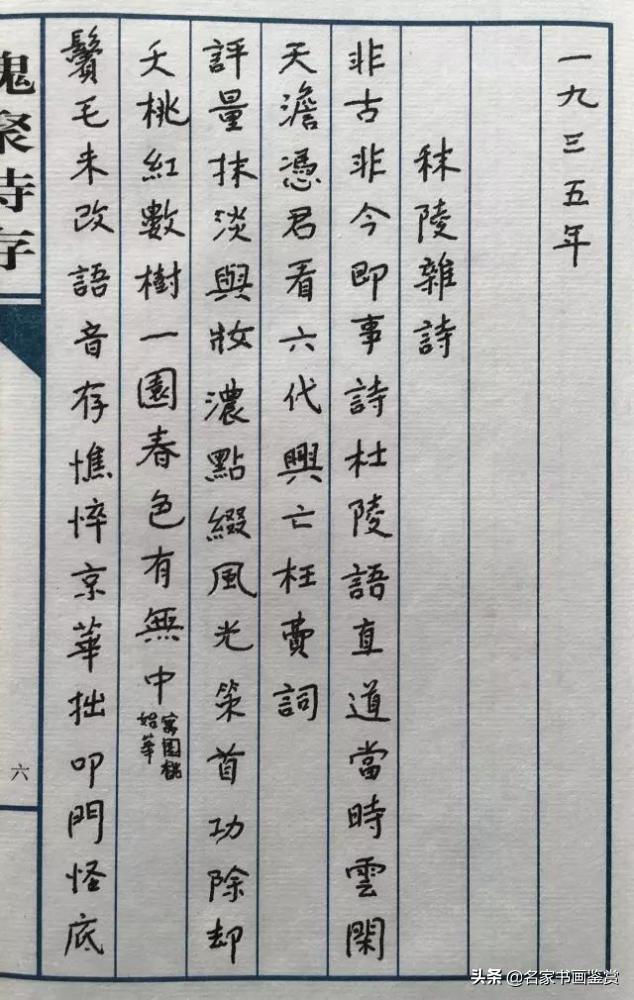 一九三五年
秣陵雜詩
非古非今即事詩杜陵語直道當時雲閑
天澹憑君看六代興亡枉費詞
評量抹淡與妝濃點綴風光策首功除却
夭桃紅數樹一園春色有無中
寓園桃
始華
鬢毛未改語音存憔悴京華拙叩門怪底
聚詩存
六
头条 @名家书画鉴赏